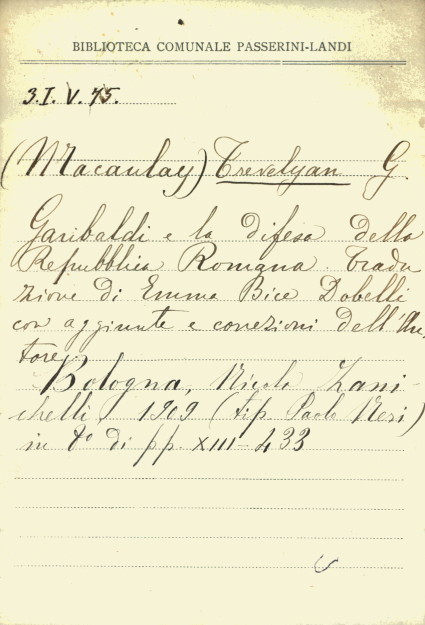 BIBLIOTECA COMUNALE PASSERINI-LANDI
3.I.V.75.
(Macaulay) Trevelyan G.
Garibaldi e la difesa della
Repubblica Romana. Tradu
zione di Emma Bice Dobelli
con aggiunte e correzioni dell'Au-
tore
Bologna, Nicola Zani-
chelli, 1909 (tip. Paolo Neri)
in 8° di pp. XIII-433